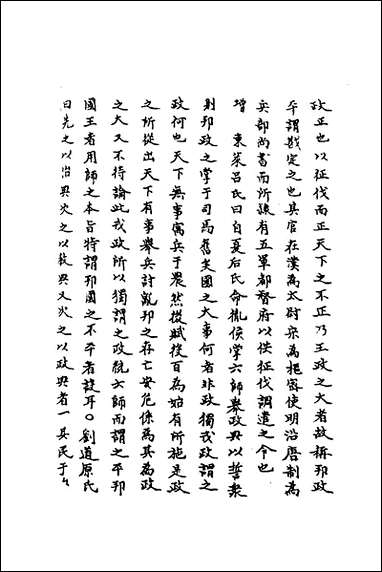 政正也以征伐而正天下之不正乃王政之大者故稱邦政
平謂戡定之也其官在漢為太尉宋為樞密使明沿唐制為
兵部尚書而所隸有五軍都督府以供征伐調遣之令也
增 東萊呂氏曰自夏后氏命胤侯掌六師舉政典以誓眾
則邦政之掌于司馬舊矣國之大事何者非政獨戎政謂之
政何也天下無事寓兵于農然後賦役百為始有所施是政
之所從出天下有事舉兵討亂邦之存亡安危係焉其為政
之大又不待論此戎政所以獨謂之政統六師而謂之平邦
國王者用師之本旨特謂邦國之不平者設耳○劉道原氏
曰先之以治典次之以教典又次之以政典者一其民于